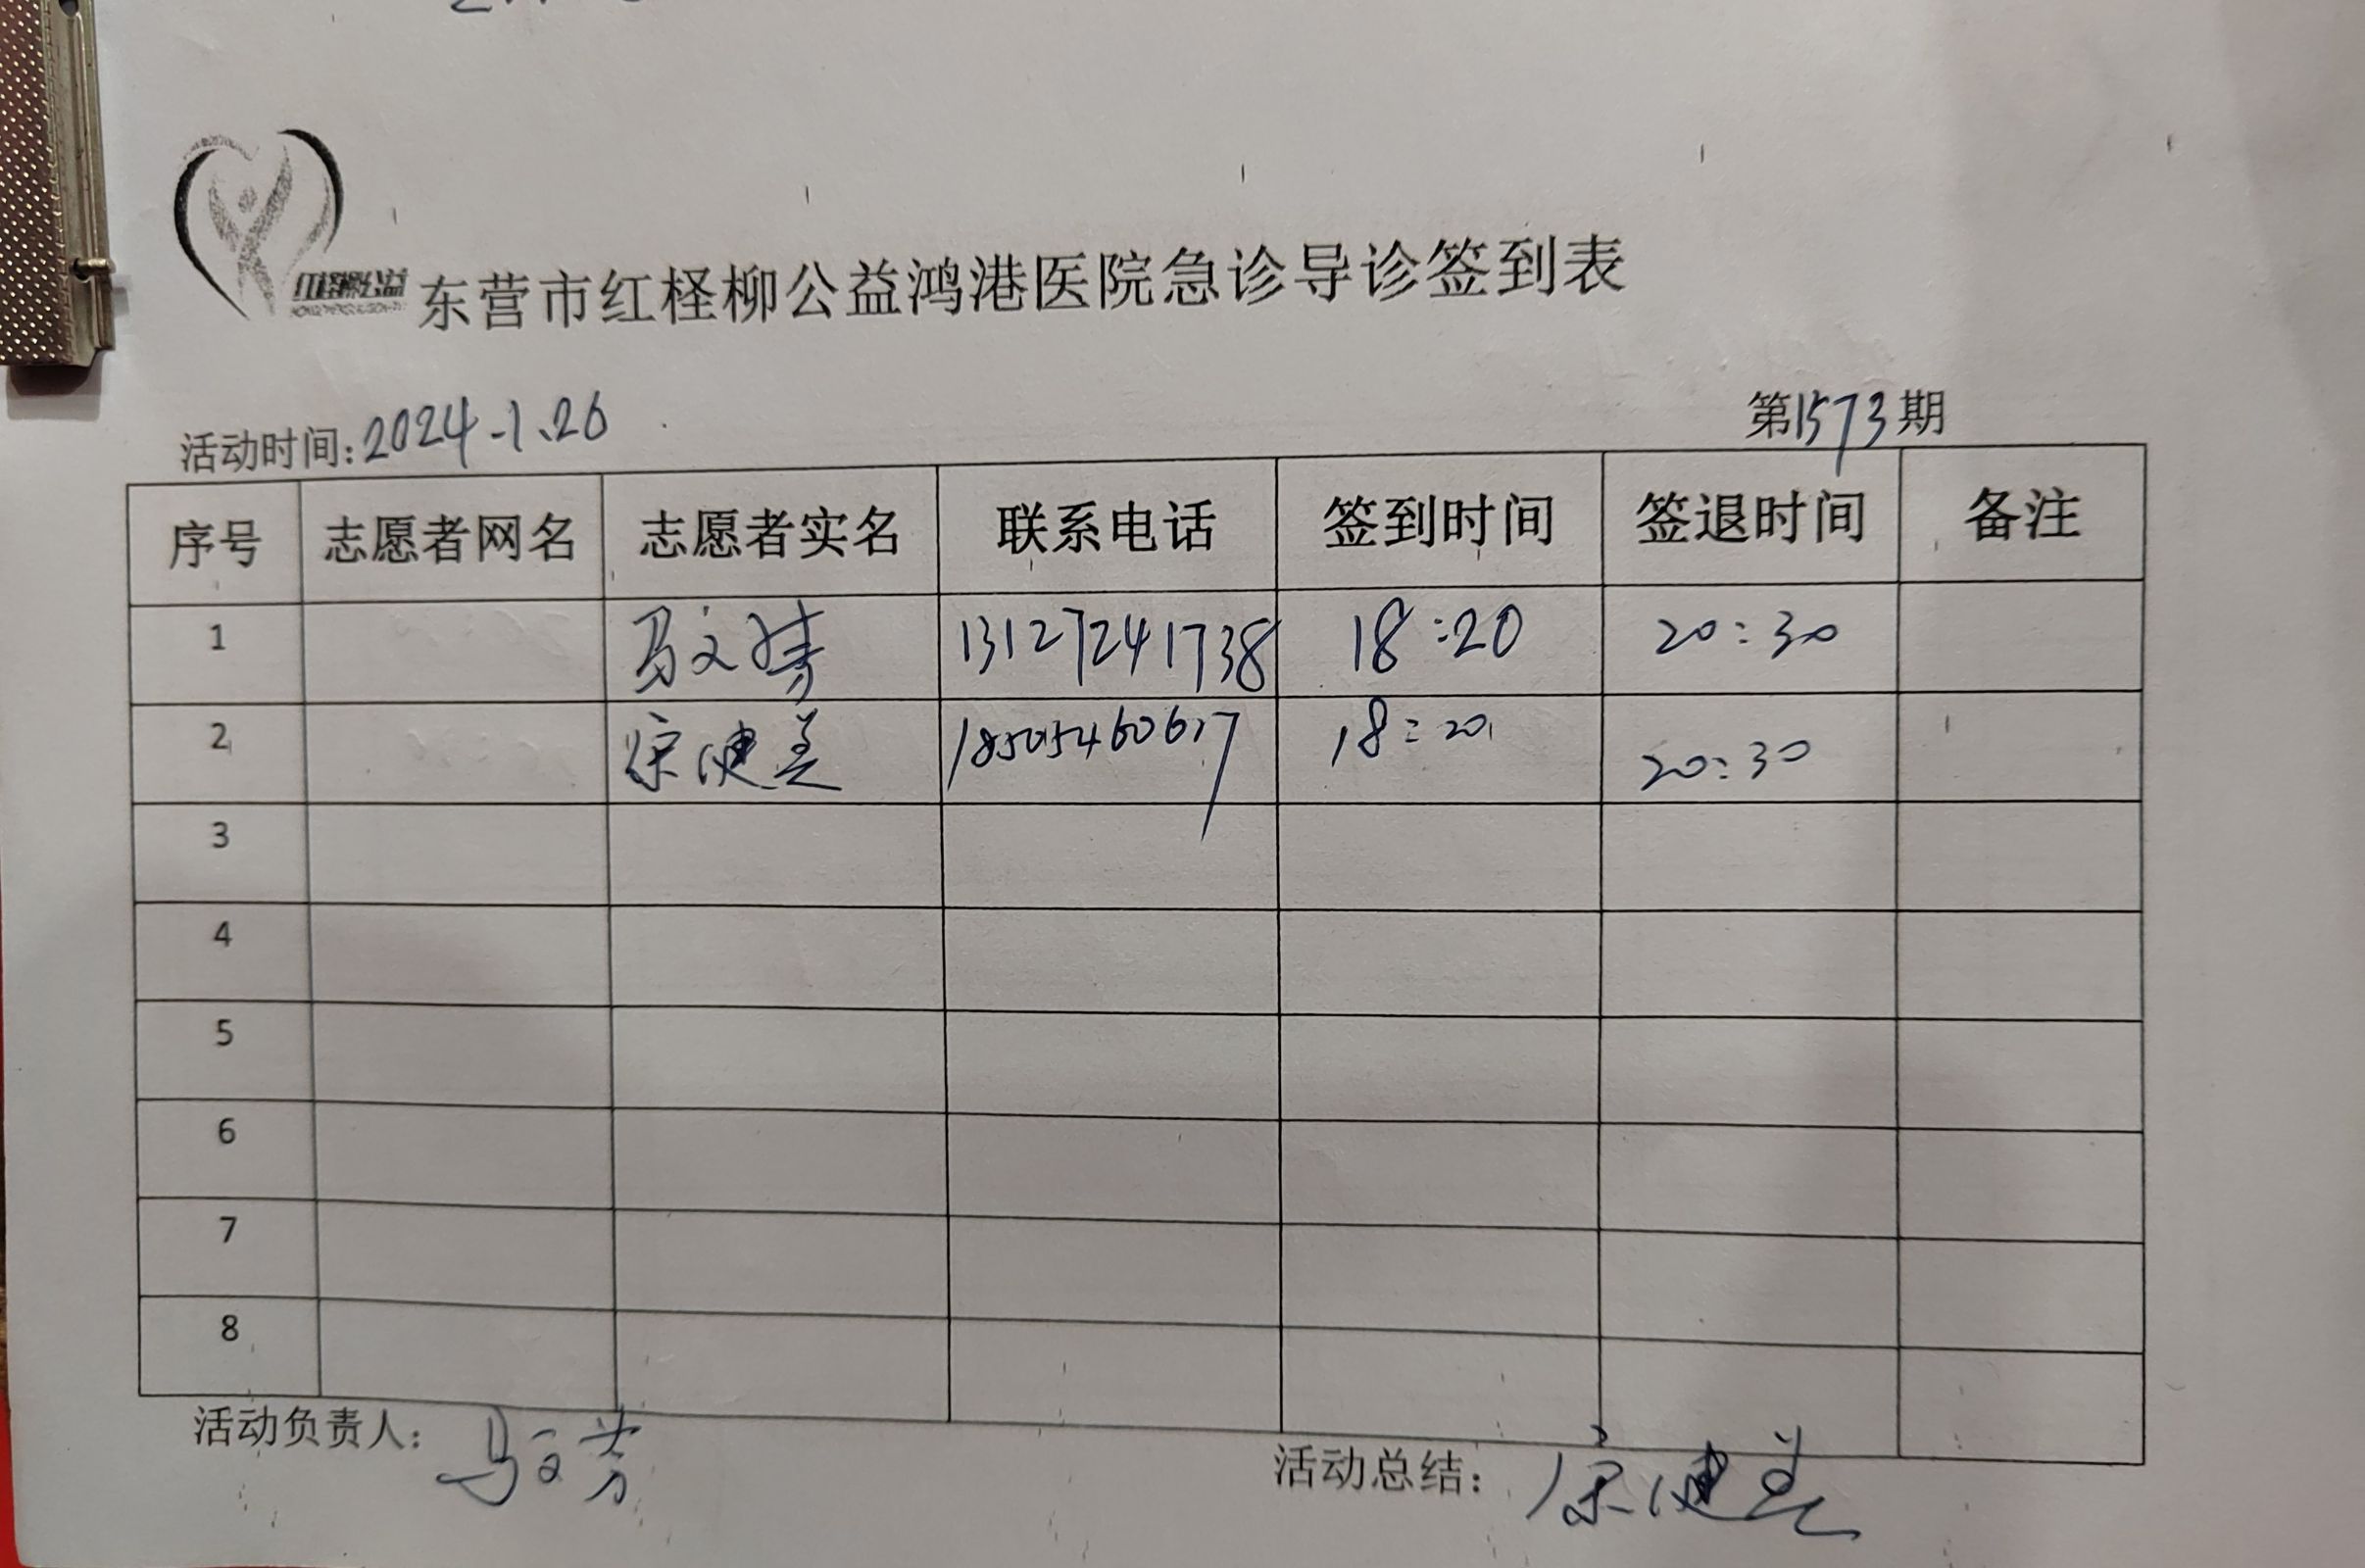 东营市红柽柳公益鸿港医院急诊导诊签到表
活动时间:2024.1.26
第1573期
序号 志愿者网名 志愿者实名 联系电话 签到时间 签退时间 备注
1 马文 13127241738 18:20 20:30
2 宋健美 18505460617 18:20 20:30
3
4
5
6
7
8
活动负责人: 马文芳
活动总结: 宋健美